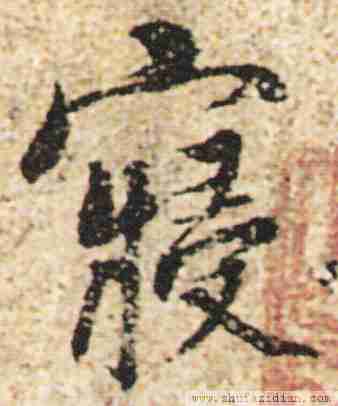 寢
www.shufazidian.com